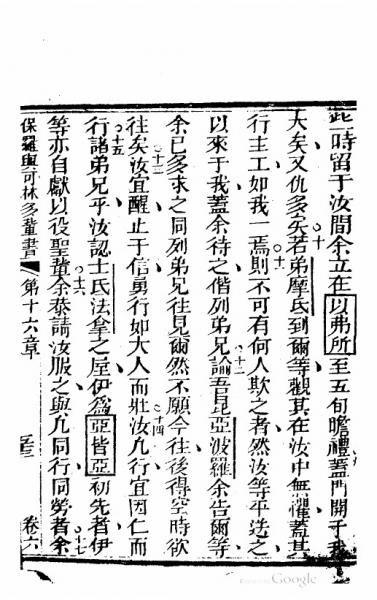 此一時留于汝間余立在以弗所至五旬瞻禮蓋門開于我
大矣又仇多矣若弟摩氏到爾等觀其在汝中無懼蓋其
行主工如我一焉則不可有何人欺之者然汝等平送之
以來于我蓋余待之偕列弟兄諭吾昆亞波羅余告爾等
余已多求之同列弟兄往見爾然不願今往後得空時欲
往矣汝宜醒止于信勇行如大人而壯汝凡行宜因仁而
行諸弟兄乎汝認士氏法拿之屋伊為亞皆亞初先者伊
等亦自獻以役聖輩余泰請汝服之與凡同行同勞者余
保羅與可林多輩書 第十六章 卷六
九
十
十一
十二
十三
十四
十五
十六
十七
Google